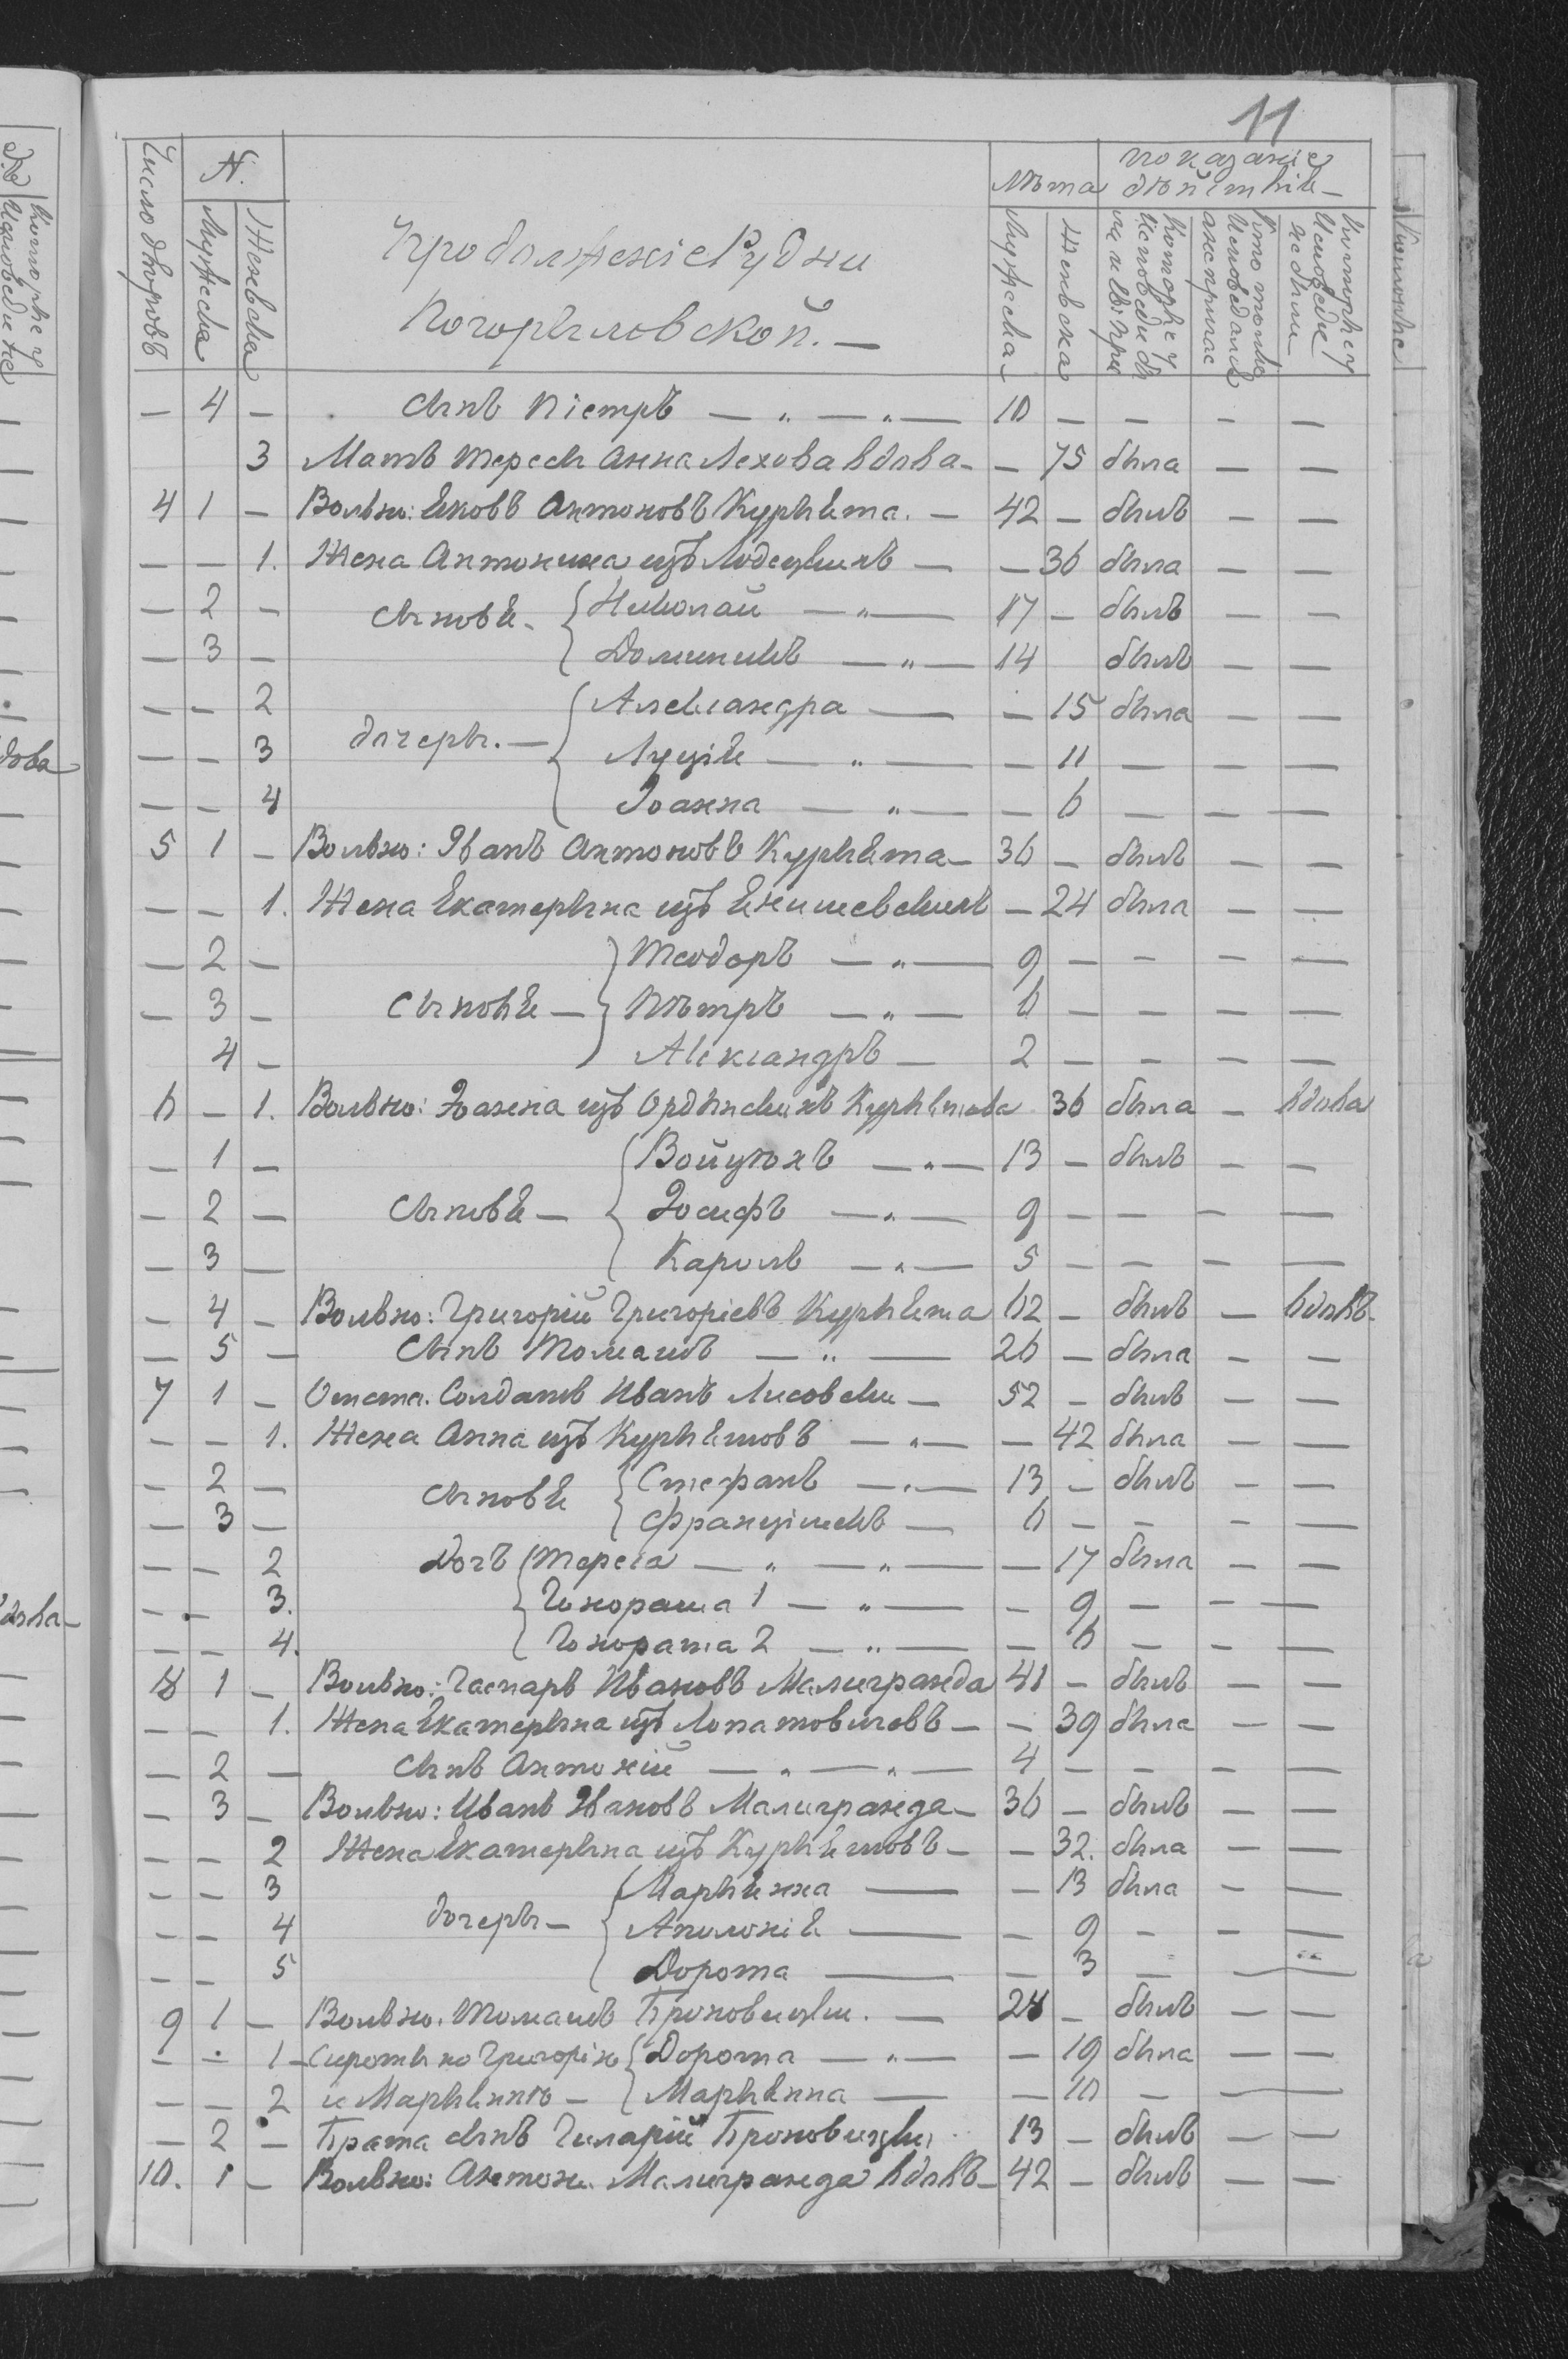 11
Число дворовъ
N.
Мужеска
Женвска
Продолженіе Рудни
Погорѣловской. —
Лѣта
Мужеска
Женвска
показаніе дѣйствіе
которые у Исповеди были и Св. При
кто только Исповедался а не причас
которые у Исповеди не были
— 4 — Сынъ Піетръ — „ — „ — 10 — — — —
3 Матъ Тереса Анна Лехова вдова — — 75 была — —
4 1 — Вольно: Яковъ Антоновъ Курыята. — 42 — былъ — —
— — 1. Жена Антонина изъ Лодецкихъ — — 36 была — —
— 2 — Сыновя — Николай — „ — 17 — былъ — —
— 3 — Доминикъ — „ — 14 былъ — —
— — 2 Александра — — 15 была — —
— — 3 дочеры. — Луція — „ — — 11 — — —
— — 4 Іоанна — „ — — 6 — — —
5 1 — Вольно: Иванъ Антоновъ Курыята — 36 — былъ — —
— — 1. Жена Екатерына изъ Янишевскихъ — 24 была — —
— 2 — Теодоръ — „ — 9 — — — —
— 3 — Сыновя — Пѣтръ — „ — 6 — — — —
4 — Александръ — 2 — — — —
6 — 1. Вольно: Іоанна изъ Ордынскихъ Курыятова 36 была — вдова
— 1 — Войцѣхъ — „ — 13 — былъ — —
— 2 — Сыновя — Іосифъ — „ — 9 — — — —
— 3 — Кароль — „ — 5 — — — —
— 4 — Вольно: Григорій Григоріевъ Курыята 62 — былъ — вдовъ
— 5 — Сынъ Томашъ — „ — 26 — была — —
7 1 — Отста. Солдатъ Иванъ Лисовски — 52 — былъ — —
— — 1. Жена Анна изъ Курыятовъ — „ — — 42 была — —
— 2 — Сыновя Стефанъ — „ — 13 — былъ — —
— 3 — Францішекъ — 6 — — — —
— — 2 Дочъ Тереса — „ — „ — — 17 была — —
— — 3. Гонората 1 — „ — — 9 — — —
— — 4. Гонората 2 — „ — — 6 — — —
8 1 — Вольно: Гаспаръ Ивановъ Малигранда 41 — былъ — —
— — 1. Жена Екатерына изъ Лопатовичовъ — — 39 была — —
— 2 — Сынъ Антоній — „ — „ — 4 — — — —
— 3 — Вольно: Иванъ Ивановъ Малигранда — 36 — былъ — —
— — 2 Жена Екатерына изъ Курыятовъ — — 32. была — —
— — 3 Марыянна — — 13 была — —
— — 4 дочеры — Аполонія — — 9 — — —
— — 5 Дорота — — 3 — — —
9 1 — Вольно. Томашъ Броновицки. — 28 — былъ — —
— — 1 — Сироты по Григорію Дорота — „ — — 19 была — —
— — 2 и Марыяннѣ — Марыянна — — 10 — — —
— 2 — Брата сынъ Гиларій Броновицки 13 — былъ — —
10. 1 — Вольно: Антони. Малигранда вдовъ — 42 — былъ — —